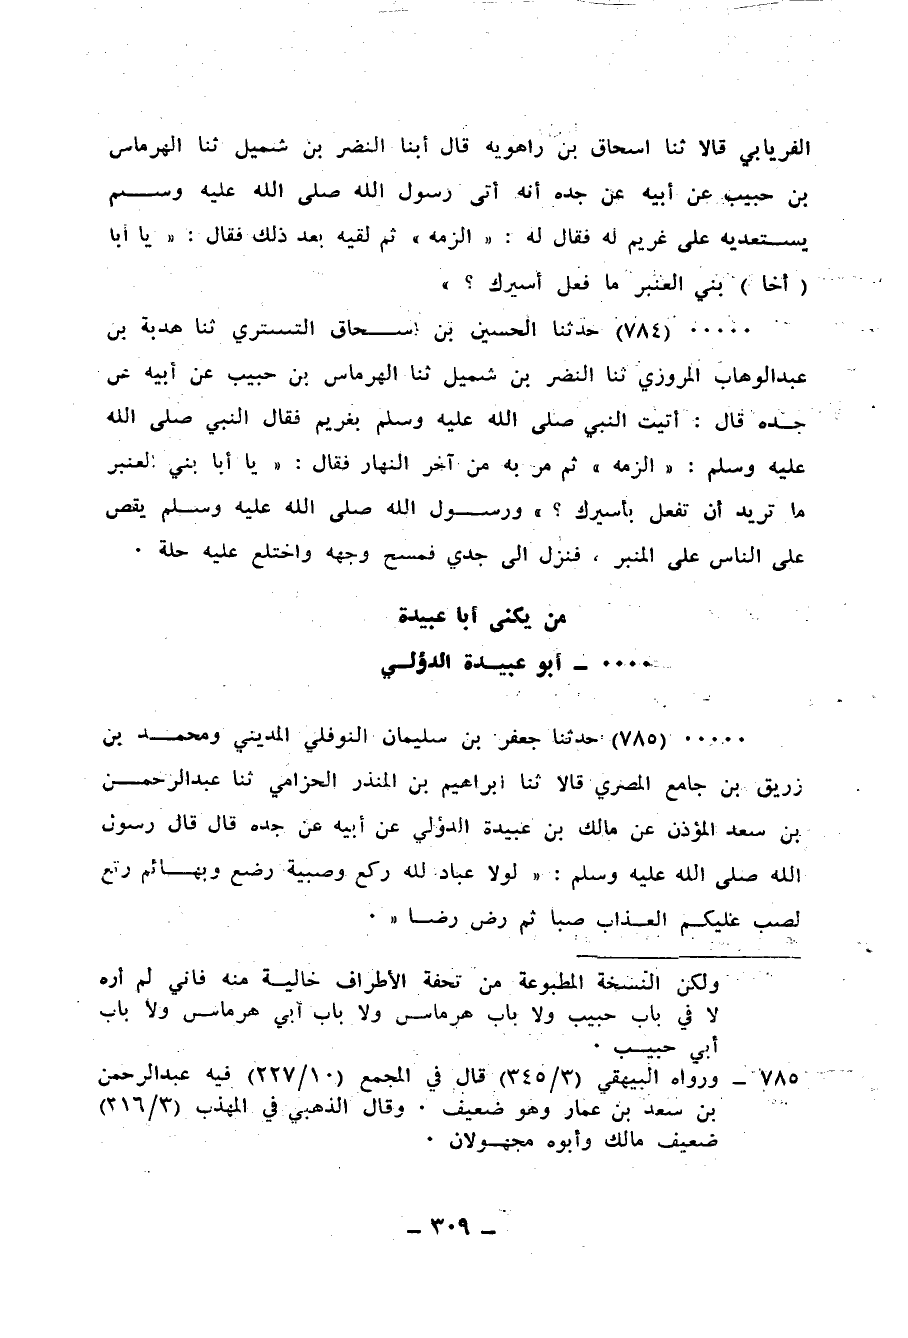 الفريابي قالا ثنا اسحاق بن راهويه قال أبنا النضر بن شميل ثنا الهرماس
بن حبيب عن أبيه عن جده أنه أتى رسول الله صلى الله عليه وسلم
يستعديه على غريم له فقال له : « الزمه » ثم لقيه بعد ذلك فقال : « يا أبا
( أخا ) بني العنبر ما فعل أسيرك ؟ »
٠٠٠٠٠ (٧٨٤) حدثنا الحسين بن اسحاق التستري ثنا هدبة بن
عبدالوهاب المروزي ثنا النضر بن شميل ثنا الهرماس بن حبيب عن أبيه عن
جده قال : أتيت النبي صلى الله عليه وسلم بغريم فقال النبي صلى الله
عليه وسلم : « الزمه » ثم مر به من آخر النهار فقال : « يا أبا بني العنبر
ما تريد أن تفعل بأسيرك ؟ » ورسول الله صلى الله عليه وسلم يقص
على الناس على المنبر ، فنزل الى جدي فمسح وجهه واختلع عليه حلة ٠
من يكنى أبا عبيدة
٠٠٠٠ ـ أبو عبيدة الدؤلي
٠٠٠٠٠ (٧٨٥) حدثنا جعفر بن سليمان النوفلي المديني ومحمد بن
زريق بن جامع المصري قالا ثنا ابراهيم بن المنذر الحزامي ثنا عبدالرحمن
بن سعد المؤذن عن مالك بن عبيدة الدؤلي عن أبيه عن جده قال قال رسول
الله صلى الله عليه وسلم : « لولا عباد لله ركع وصبية رضع وبهائم رتع
لصب عليكم العذاب صبا ثم رض رضا » ٠
ولكن النسخة المطبوعة من تحفة الأطراف خالية منه فاني لم أره
لا في باب حبيب ولا باب هرماس ولا باب أبي هرماس ولا باب
أبي حبيب ٠
٧٨٥ ـ ورواه البيهقي (٣٤٥/٣) قال في المجمع (٢٢٧/١٠) فيه عبدالرحمن
بن سعد بن عمار وهو ضعيف ٠ وقال الذهبي في المهذب (٢١٦/٣)
ضعيف مالك وأبوه مجهولان ٠
ـ ٣٠٩ ـ